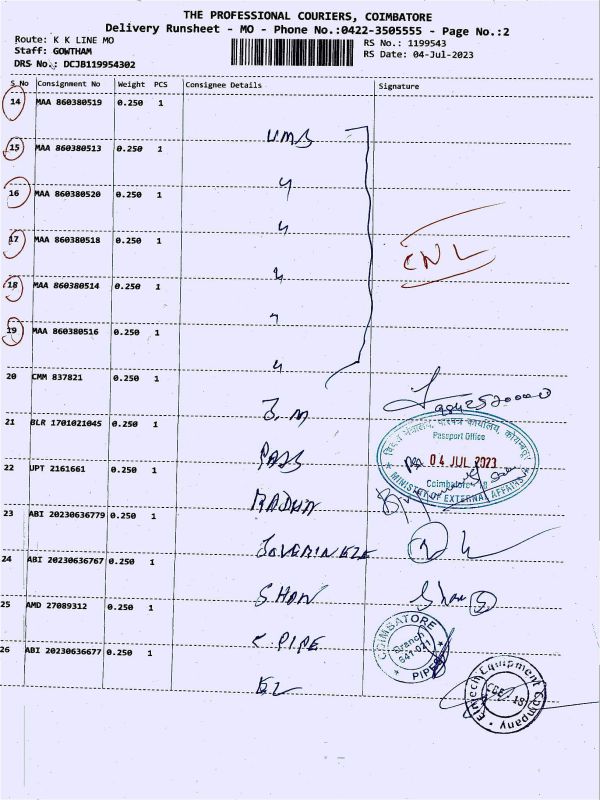 THE PROFESSIONAL COURIERS, COIMBATORE
Delivery Runsheet - MO - Phone No.:0422-3505555 - Page No.:2
Route: K K LINE MO
RS No.: 1199543
Staff: GOWTHAM
RS Date: 04-Jul-2023
DRS No.: DCJB119954302
S No Consignment No Weight PCS Consignee Details Signature
14 MAA 860380519 0.250 1
UMS
15 MAA 860380513 0.250 1
16 MAA 860380520 0.250 1
17 MAA 860380518 0.250 1
CNL
18 MAA 860380514 0.250 1
19 MAA 860380516 0.250 1
20 CMM 837821 0.250 1
21 BLR 1701021045 0.250 1
Passport Office
PASS
04 JUL 2023
22 UPT 2161661 0.250 1
Coimbatore - 18
MINISTRY OF EXTERNAL AFFAIRS
MADHU
23 ABI 20230636779 0.250 1
24 ABI 20230636767 0.250 1
SHAN
25 AMD 27089312 0.250 1
COIMBATORE
Branch
641-021
PIPES
PIPE
26 ABI 20230636677 0.250 1
Equipment Company
CBE - 18